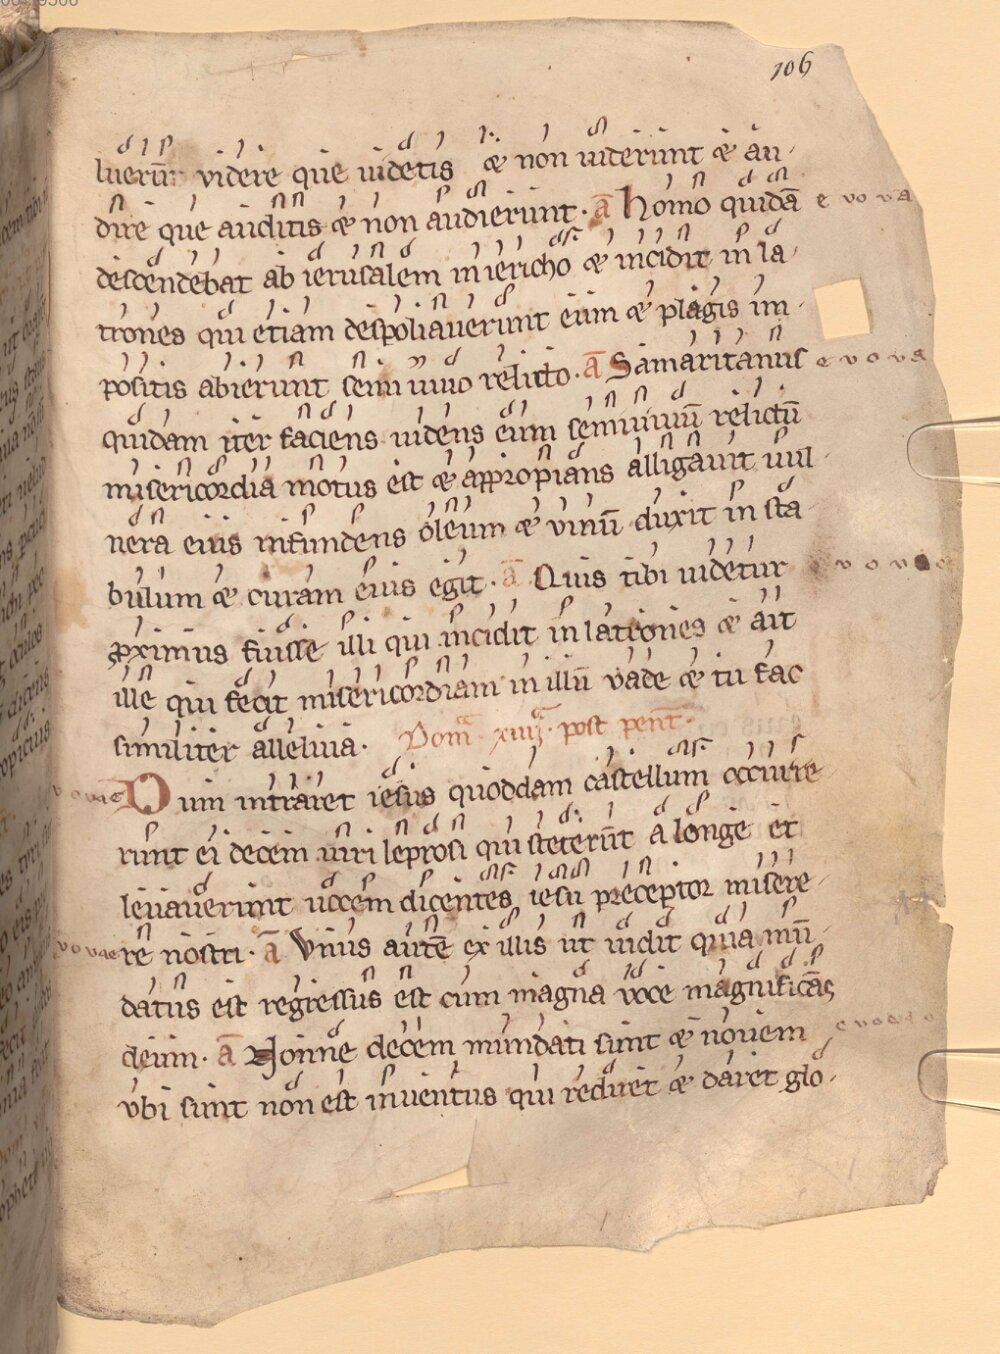 106
luerūt videre que uidetis & non uiderunt & au-
dire que auditis & non audierunt. ā homo quidā e vo va
descendebat ab ierusalem in iericho & incidit in la-
trones qui etiam despoliauerunt eum & plagis im-
positis abierunt semi uiuo relicto. ā Samaritanus e v o v a
quidam iter faciens uidens eum semiuiuū relictū
misericordia motus est & appropians alligauit uul-
nera eius infundens oleum & vinū duxit in sta-
bulum & curam eius egit. ā Quis tibi uidetur
ꝓximus fuisse illi qui incidit in latrones & ait
ille qui fecit misericordiam in illū vade & tu fac
similiter alleluia. Dom̄ xiiij post pent̄.
Dum intraret iesus quoddam castellum occurre-
runt ei decem uiri leprosi qui steterūt a longe et
leuauerunt uocem dicentes iesu preceptor misere-
re nostri. ā Vnus autē ex illis ut uidit quia mū-
datus est regressus est cum magna voce magnificās
deum. ā Nonne decem mundati sunt & nouem
vbi sunt non est inuentus qui rediret & daret glo-